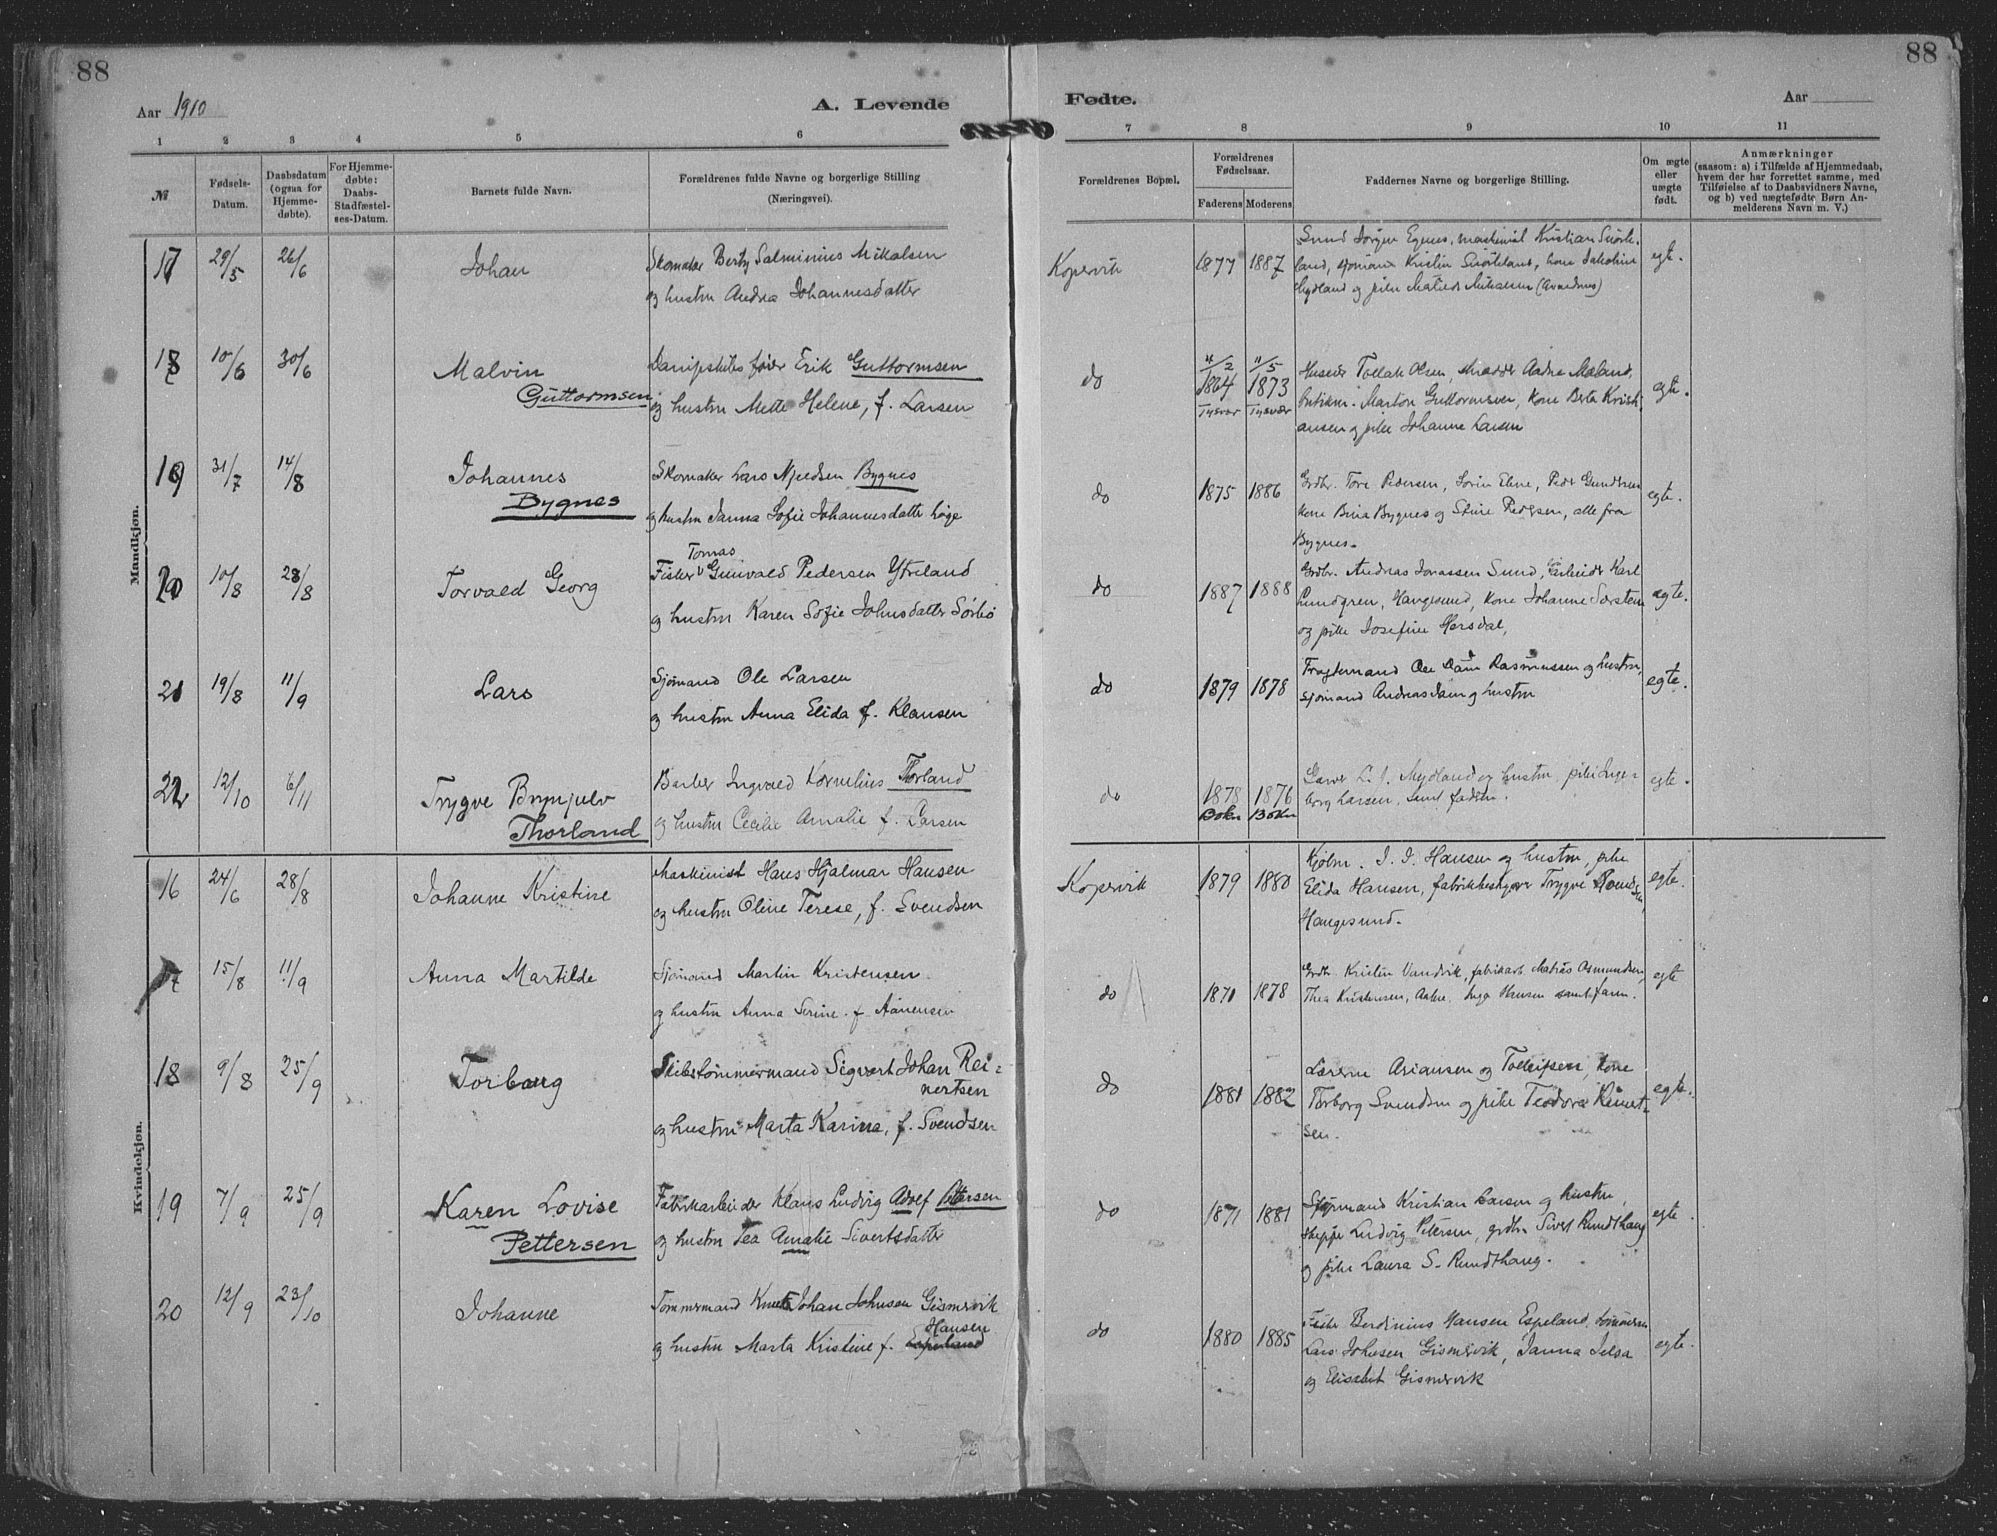 88
88
Aar 1910
A. Levende
Fødte.
Aar
1 2 3 4 5 6 7 8 9 10 11
№
Fødsels-
Datum.
Daabsdatum
(ogsaa for
Hjemme-
døbte).
For Hjemme-
døbte:
Daabs-
Stadfæstel-
ses-Datum.
Barnets fulde Navn.
Forældrenes fulde Navne og borgerlige Stilling
(Næringsvei).
Forældrenes Bopæl.
Forældrenes
Fødselsaar.
Faderens
Moderens
Faddernes Navne og borgerlige Stilling.
Om ægte
eller
uægte
født.
Anmærkninger
(saasom: a) i Tilfælde af Hjemmedaab,
hvem der har forrettet samme, med
Tilføielse af to Daabsvidners Navne,
og b) ved uægtefødte Børn An-
melderens Navn m. V.)
Mandkjøn.
17 29/5 26/6 Johan
Skomaker Salminius Mikalsen
og hustru Andrea Johannesdatter
Kopervik 1877 1887
Jørgen Egnes, maskinist Kristian
kone Jakobine
Mydland og pike
egt.
18 10/6 30/6 Malvin
Guttormsen
Dampskibsfører Erik Guttormsen
og hustru Mette Helene, f. Larsen
do
4/2 11/5
1864 1873
Tysvær Tysvær
Tollak Olsen, Aadne Mæland,
Marton Guttormsen, kone Berta Krist-
ansen og pike Johanne Larsen
egt.
19 31/7 14/8 Johannes
Bygnes
Skomaker Lars Bygnes
og hustru Janna Sofie Johannesdatter
do 1875 1886
Grdbr. Tore Pedersen, Peder Gundersen
kone Bygnes og Stine Pedersen, alle fra
Bygnes.
egte.
20 10/8 28/8 Torvald Georg
Tomas
Fisker Gunvald Pedersen Ytreland
og hustru Karen Sofie Johnsdatter Sørbø
do 1887 1888
Grdbr. Andreas Jonassen Sund, Karl
Lundgren, Haugesund, kone Johanne
og pike Josefine
ægte.
21 19/8 11/9 Lars
Sjømand Ole Larsen
og hustru Anna Elida f. Klausen
do 1879 1878
Fragtemand Ole Dam Rasmussen og hustru,
sjømand Andreas Dam og hustru
egte.
22 12/10 6/11 Trygve Brynjulv
Thorland
Barber Ingvald Kornelius Thorland
og hustru Cecilie Amalie f. Larsen
do 1878 1876
Bokn Bokn
Garver L. J. Mydland og hustru, pike Inge-
borg Larsen, samt fadern.
egte.
Kvindekjøn.
16 24/6 28/8 Johanne Kristine
Maskinist Hans Hjalmar Hansen
og hustru Oline Terese, f. Svendsen
Kopervik 1879 1880
Kjøbm. J. J. Hansen og hustru, pike
Elida Hansen, fabrikbestyrer Trygve
Haugesund.
egte.
17 15/8 11/9 Anna Martilde
Sjømand Martin Kristensen
og hustru Anna Serine f. Aanensen
do 1870 1878
Grdbr. Kristin Vandvik, fabrikarb. Matias Osmundsen,
Thea Kristensen, Inga Hansen samt farm.
egte
18 9/8 25/9 Torborg
Skibstømmermand Sigvart Johan Rei-
nertsen
og hustru Marta Karina, f. Svendsen
do 1881 1882
Lærerne Ariansen og Tollefsen, kone
Torborg Svendsen og pike Teodora Reinert-
sen.
egte.
19 7/9 25/9 Karen Lovise
Pettersen
Fabrikarbeider Klaus Ludvig Adolf Pettersen
og hustru Tea Amalie Sivertsdatter
do 1871 1881
Styrmand Kristian Larsen og hustru,
Ludvig Petersen, grdbr. Sivert Rundthaug
og pike Laura S. Rundthaug.
egte
20 12/9 23/10 Johanne
Tømmermand Johan Johnsen Gismervik
Hansen
og hustru Marta Kristine f.
do 1880 1885
Fisker Berdinius Hansen Espeland,
Lars Johnsen Gismervik, Janna Jelsa
og Elisabet Gismervik
egte.